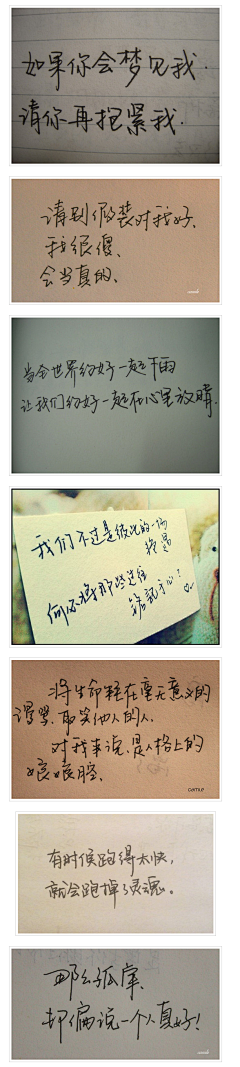 如果你会梦见我.
请你再抱紧我.
请别假装对我好、
我很傻、
会当真的、
当全世界约好一起下雨
让我们约好一起在心里放晴.
我们不过是彼此的一场
何必将那些过往
铭记于心?
将生命耗在毫无意义的
耻笑他人的人.
对我来说、是人格上的
娘娘腔.
有时候跑得太快,
就会跑掉了灵魂。
那么孤单、
却偏说一个人真好!